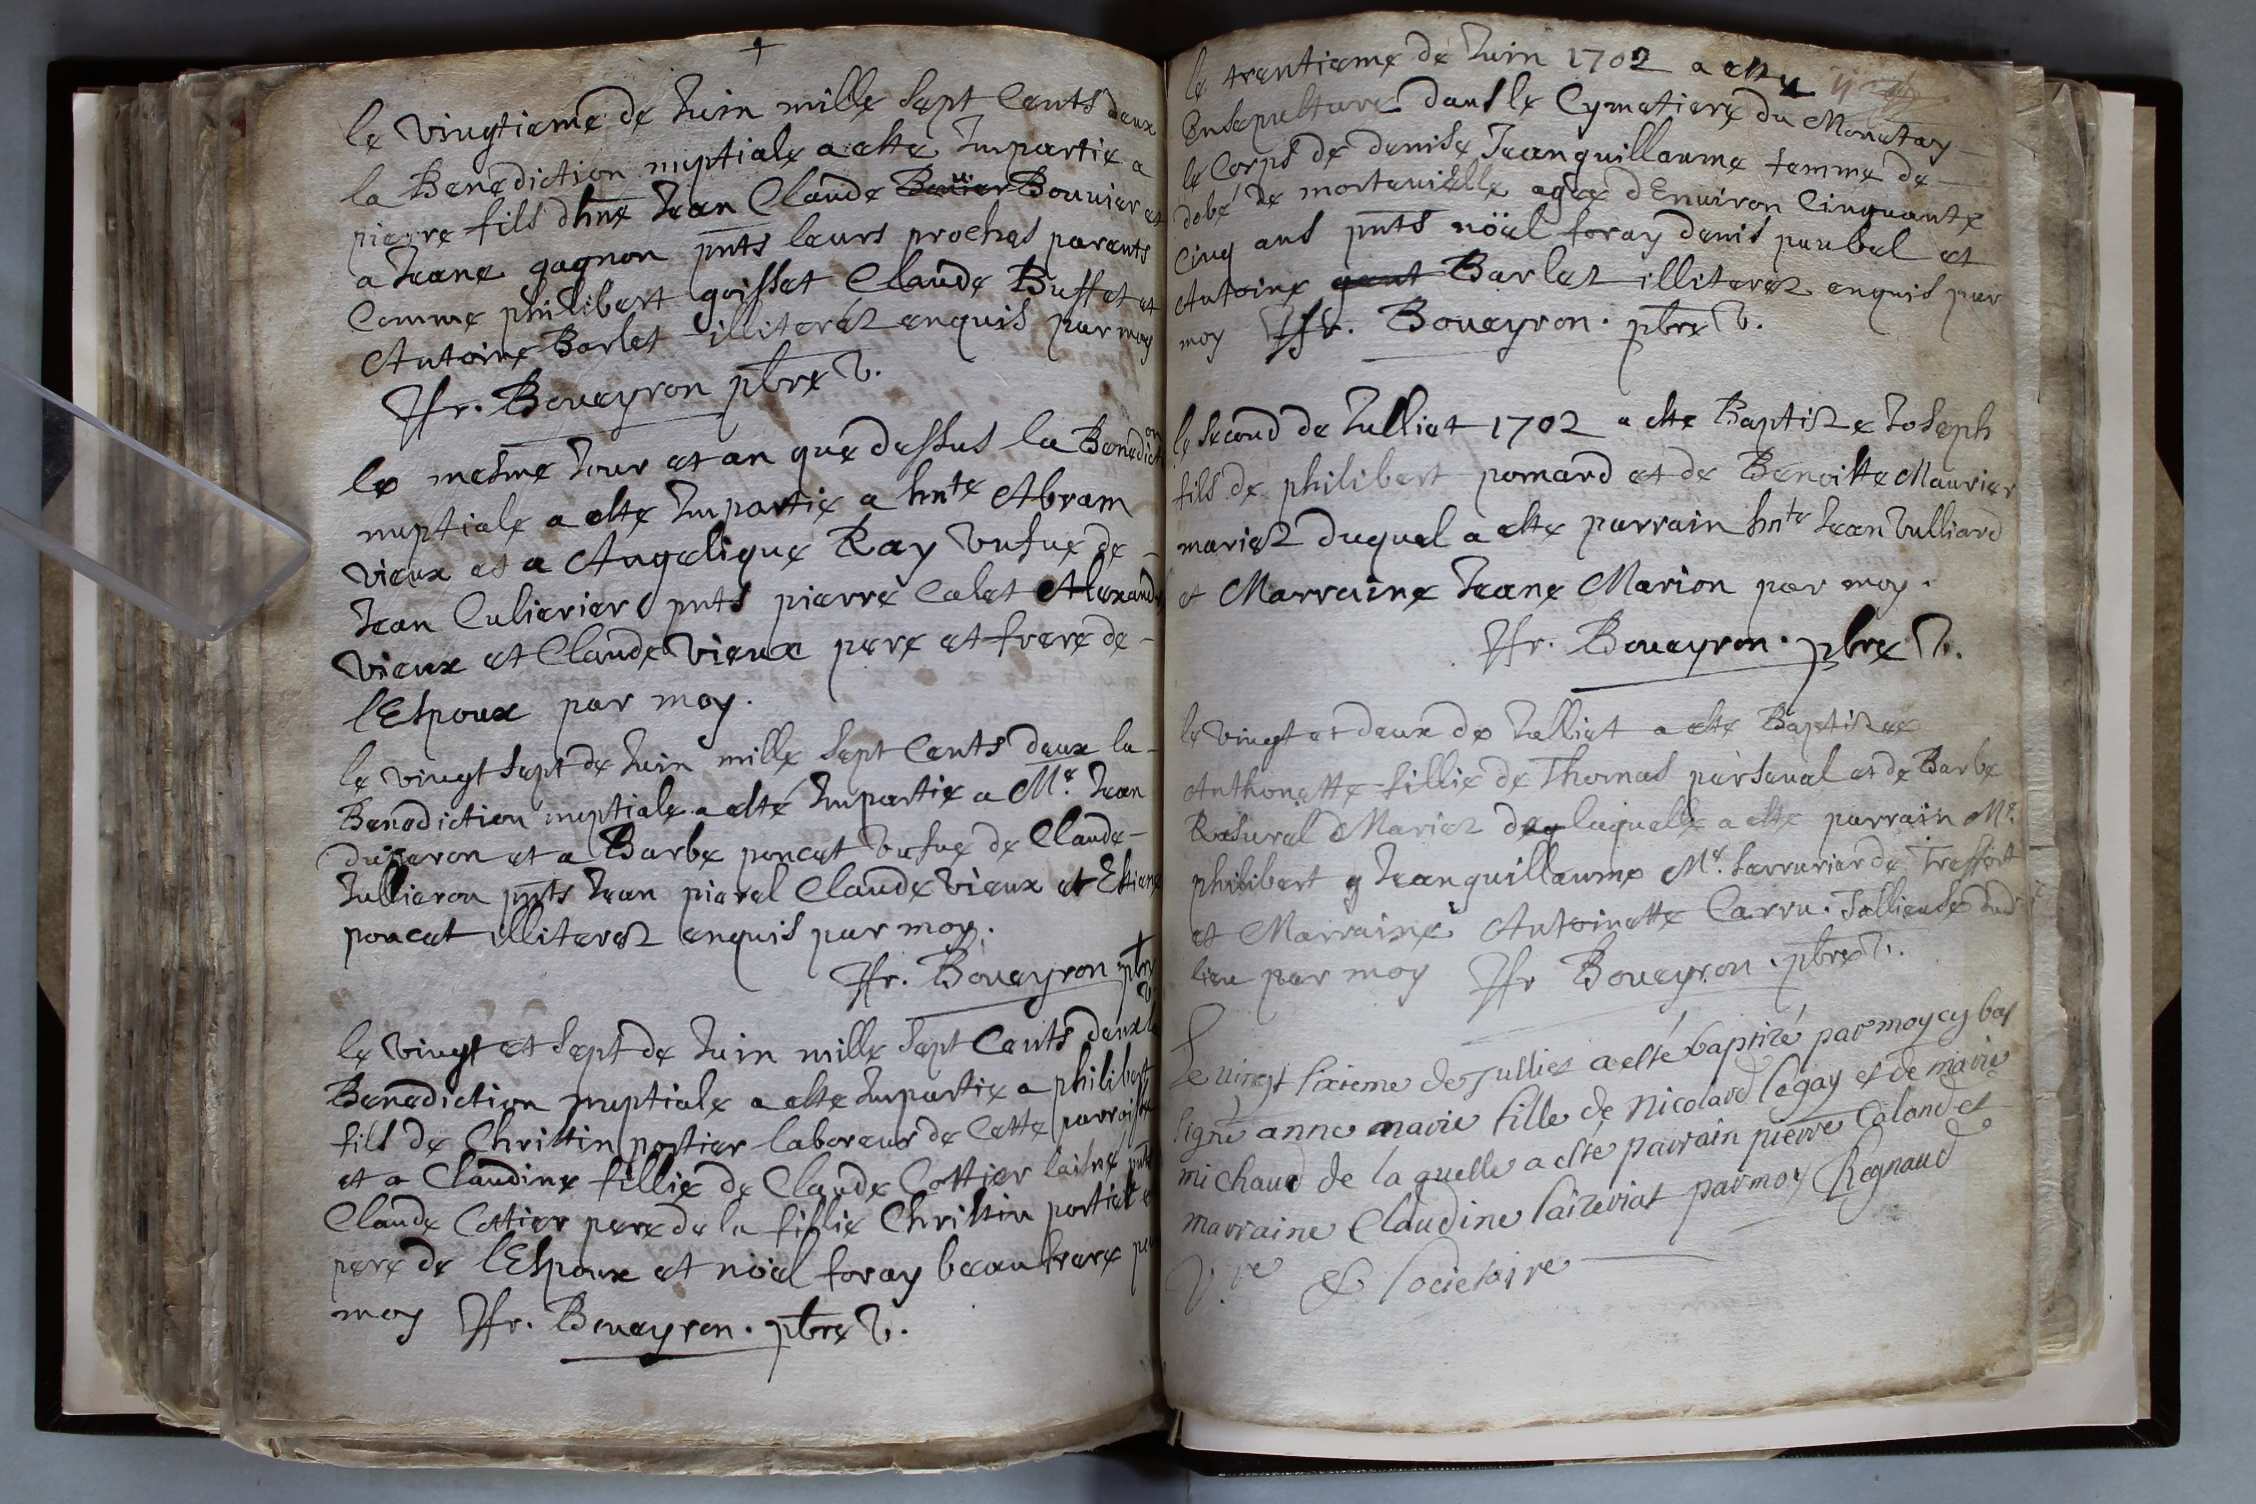 le vingtieme de Juin mille sept Cents deux
la Benediction nuptiale a este Impartie a
pierre fils dhne Jean Claude Bouvier et
a Jeane gagnon pnts leurs proches parents
Comme philibert goisset Claude Buffet et
Antoine Barlet illiterez enquis par moy
ffr. Boueyron pbre V.
le mesme Jour et an que dessus la Benediction
nuptiale a este Impartie a hnte Abram
vieux et a Angelique Ray vefue de
Jean Culierier pnts pierre Calet Alexandre
vieux et Claude vieux pere et frere de
l'Espoux par moy.
le vingt sept de Juin mille sept Cents deux la
Benediction nuptiale a esté Impartie a Mr. Jean
duperon et a Barbe poncet vefue de Claude
Jullieron pnts Jean pierel Claude vieux et Estiene
poncet illiterez enquis par moy.
ffr. Boueyron pbre
V.
le vingt et sept de Juin mille sept Cents deux la
Benediction nuptiale a este Impartie a philibert
fils de Christin portier laboreur de Cette parroisse
et a Claudine fillie de Claude Cottier laisné pnts
Claude Cottier pere de la fillie Christin portier
pere de l'Espoux et noël foray beau frere par
moy ffr. Boueyron. pbre V.
le trentieme de Juin 1702 a este
Ensepulture dans le Cymetiere du Monetay
le Corps de denise Jeanguillaume femme de
dobé de morteuielle agée d'Enuiron Cinquante
Cinq ans pnts nöel foray denis paubel et
Antoine Barlet illiterez enquis par
moy ffr. Boueyron. pbre V.
le second de Julliet 1702 a este Baptize Joseph
fils de philibert pomard et de Benoitte Maurier
mariez duquel a este parrain hnte Jean Vulliard
et Marraine Jeane Marion par moy.
ffr. Boueyron. pbre V.
le vingt et deux de Julliet a este Baptizee
Anthonette fillie de Thomas perseual et de Barbe
Rasurel Mariez de laquelle a este parrain Mr.
philibert Jeanguillaume Mr. serrurier de Treffort
et Marraine Antoinette Carru. Tallieuse dud
lieu par moy ffr Boueyron. pbre V.
Le vingt sixieme de Julliet a esté baptizé par moy cy bas
signé anne marie fille de Nicolard legay et de marie
michaud de laquelle a esté parrain pierre Caland et
marraine Claudine laizeriat par moy Regnaud
V.re & societaire